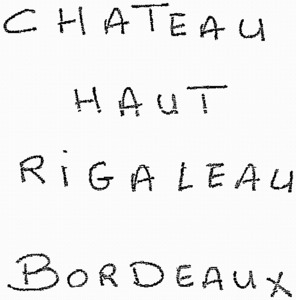 CHATEAU
HAUT
RiGALEAU
BORDEAUX